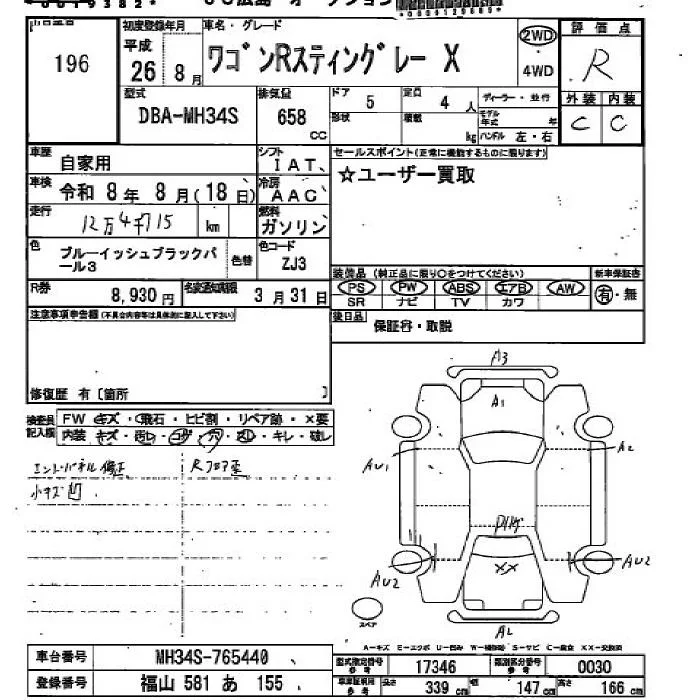 196
初度登録年月
平成
26年 8月
車名・グレード
ワゴンRスティングレー X
2WD
4WD
評価点
R
外装 内装
C C
型式
DBA-MH34S
排気量
658
cc
ドア 5
定員 4人
形状
積載 kg
ディーラー・並行
モデル年式 年
ハンドル 左・右
車歴 自家用
シフト IAT
セールスポイント(正常に機能するものに限ります)
☆ユーザー買取
車検 令和 8年 8月(18日)
冷房 AAC
走行 12万4千715 km
燃料 ガソリン
色 ブルーイッシュブラックパール3
色替
色コード ZJ3
装備品 (純正品に限り○をつけてください)
新車保証書
PS PW ABS エアB AW
SR ナビ TV カワ
有・無
R券 8,930円
名変通知期限 3月31日
後日品 保証書・取説
注意事項申告欄(不具合内容等は具体的に記入して下さい)
修復歴 有〔箇所 〕
検査員記入欄
FW キズ・飛石・ヒビ割・リペア跡・×要
内装 キズ・汚レ・コゲ・穴・凹・キレ・破レ
エンドパネル修正
Rフロア歪
小キズ凹
A3
A1
AU1
A2
AU2
AU2
XX
A2
スペア
A-キズ E-エクボ U-凹み W-補修跡 S-サビ C-腐食 XX-交換済
車台番号 MH34S-765440
登録番号 福山 581 あ 155
型式指定番号 参考 17346
類別区分番号 参考 0030
車庫証明用 参考
長さ 339 cm
幅 147 cm
高さ 166 cm